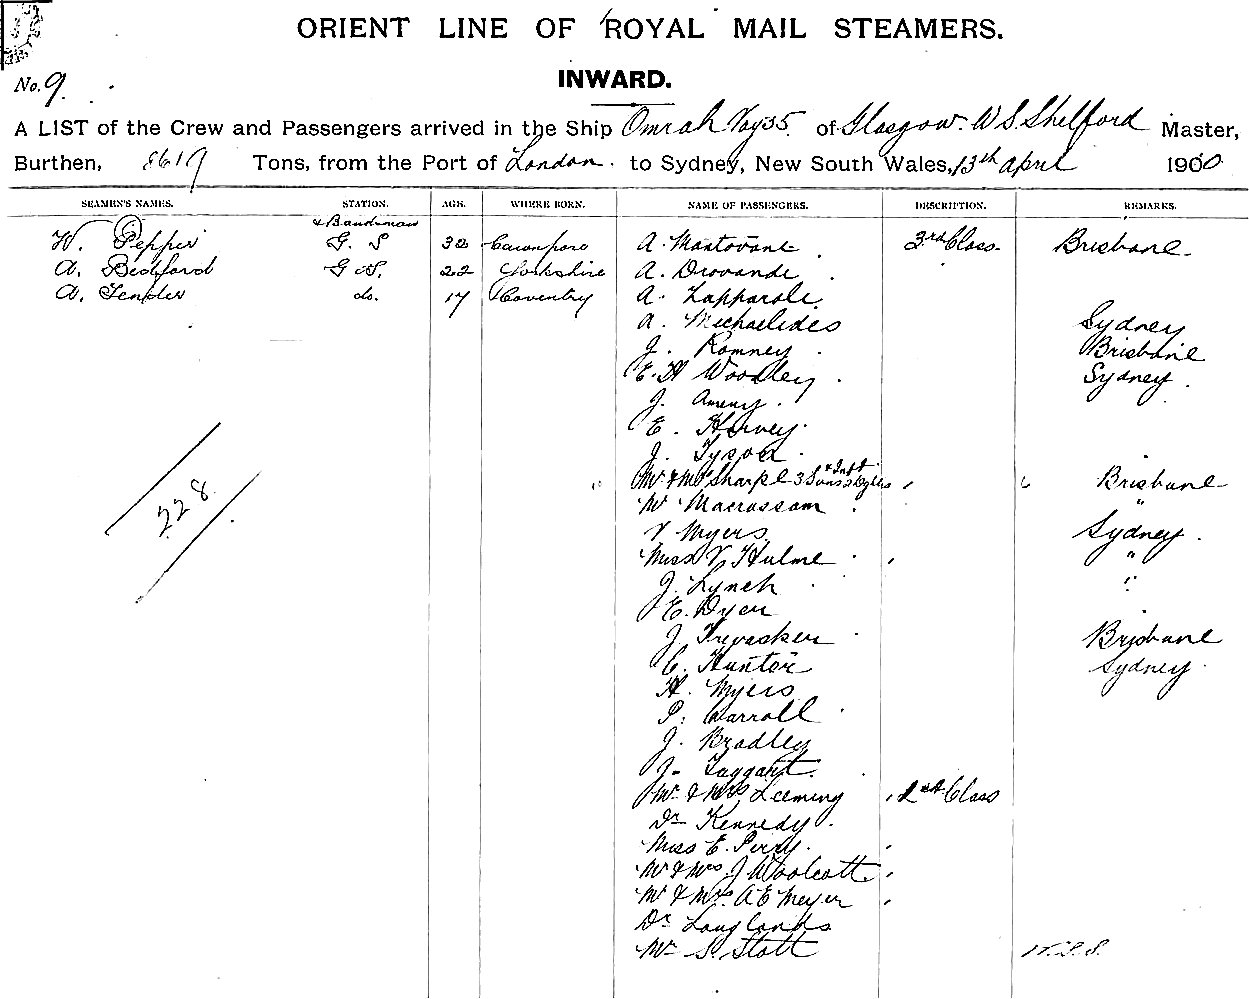 ORIENT LINE OF ROYAL MAIL STEAMERS.
No. 9.
INWARD.
A LIST of the Crew and Passengers arrived in the Ship Omrah Voy 35 of Glasgow. W S Shelford Master,
Burthen, 8619 Tons, from the Port of London. to Sydney, New South Wales, 13th April 1900
SEAMEN'S NAMES. STATION. AGE. WHERE BORN. NAME OF PASSENGERS. DESCRIPTION. REMARKS.
& Bandsman
W. Pepper G. S 32 Cawnpore A. Mantovani 3rd Class Brisbane
A. Bedford G S. 22 Yorkshire A. Drovandi
A. Tender do. 17 Coventry A. Zapparoli
A. Michaelides Sydney
J. Romney Brisbane
E. H Woodley Sydney
J. Ameny
E. Harvey
J. Tyson
Mr & Mrs Sharpe 3 Sons & Inft Brisbane
W Macrossam "
V Myers Sydney
Miss V Hulme "
J. Lynch "
E. Dyer
J. Trevasken Brisbane
C. Hunter Sydney
H. Myers
P. Carroll
J. Bradley
J. Taggart
Mr & Mrs Leeming 1st Class
Dr Kennedy
Miss E. Perry
Mr & Mrs J Woolcott
Mr & Mrs A E Meyer
Dr Langlands
Mr S. Stott
228